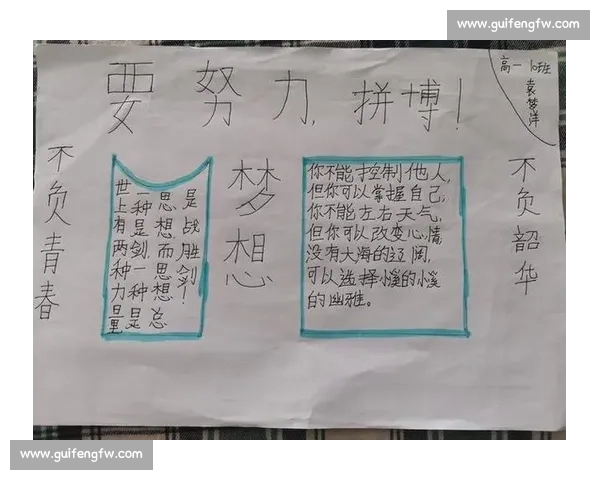 www.guifengfw.com
高一 10班
袁梦洋
要努力,拼博!
不负青春
世上有两种力量
一种是剑,一种是
思想,而思想总
是战胜剑!
梦想
你不能控制他人,
但你可以掌握自己;
你不能左右天气,
但你可以改变心情,
没有大海的辽阔,
可以选择小溪的小溪
的幽雅。
不负韶华
www.guifengfw.com